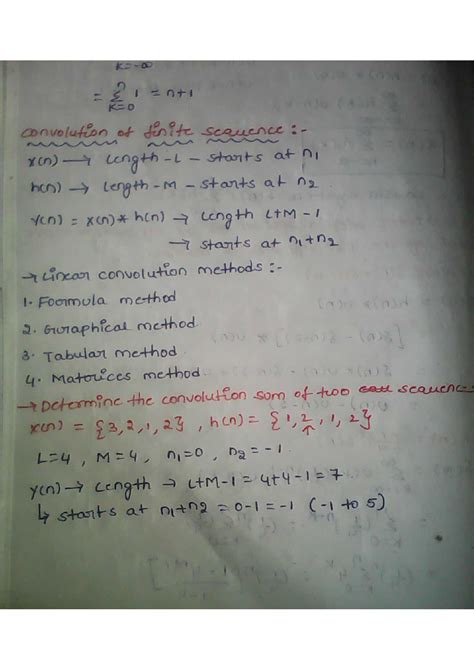 k=-∞
= Σ 1 = n+1
n
k=0
convolution of finite sequence :-
x(n) → Length - L - starts at n1
h(n) → Length - M - starts at n2
y(n) = x(n) * h(n) → Length L+M-1
→ starts at n1+n2
→ Linear convolution methods :-
1. Formula method
2. Graphical method
3. Tabular method
4. Matrices method
→ Determine the convolution som of two sequence
x(n) = {3, 2, 1, 2} , h(n) = {1, 2, 1, 2}
↑
L=4 , M=4 , n1=0 , n2=-1
y(n) → Length → L+M-1 = 4+4-1 = 7
↳ starts at n1+n2 = 0-1 = -1 (-1 to 5)